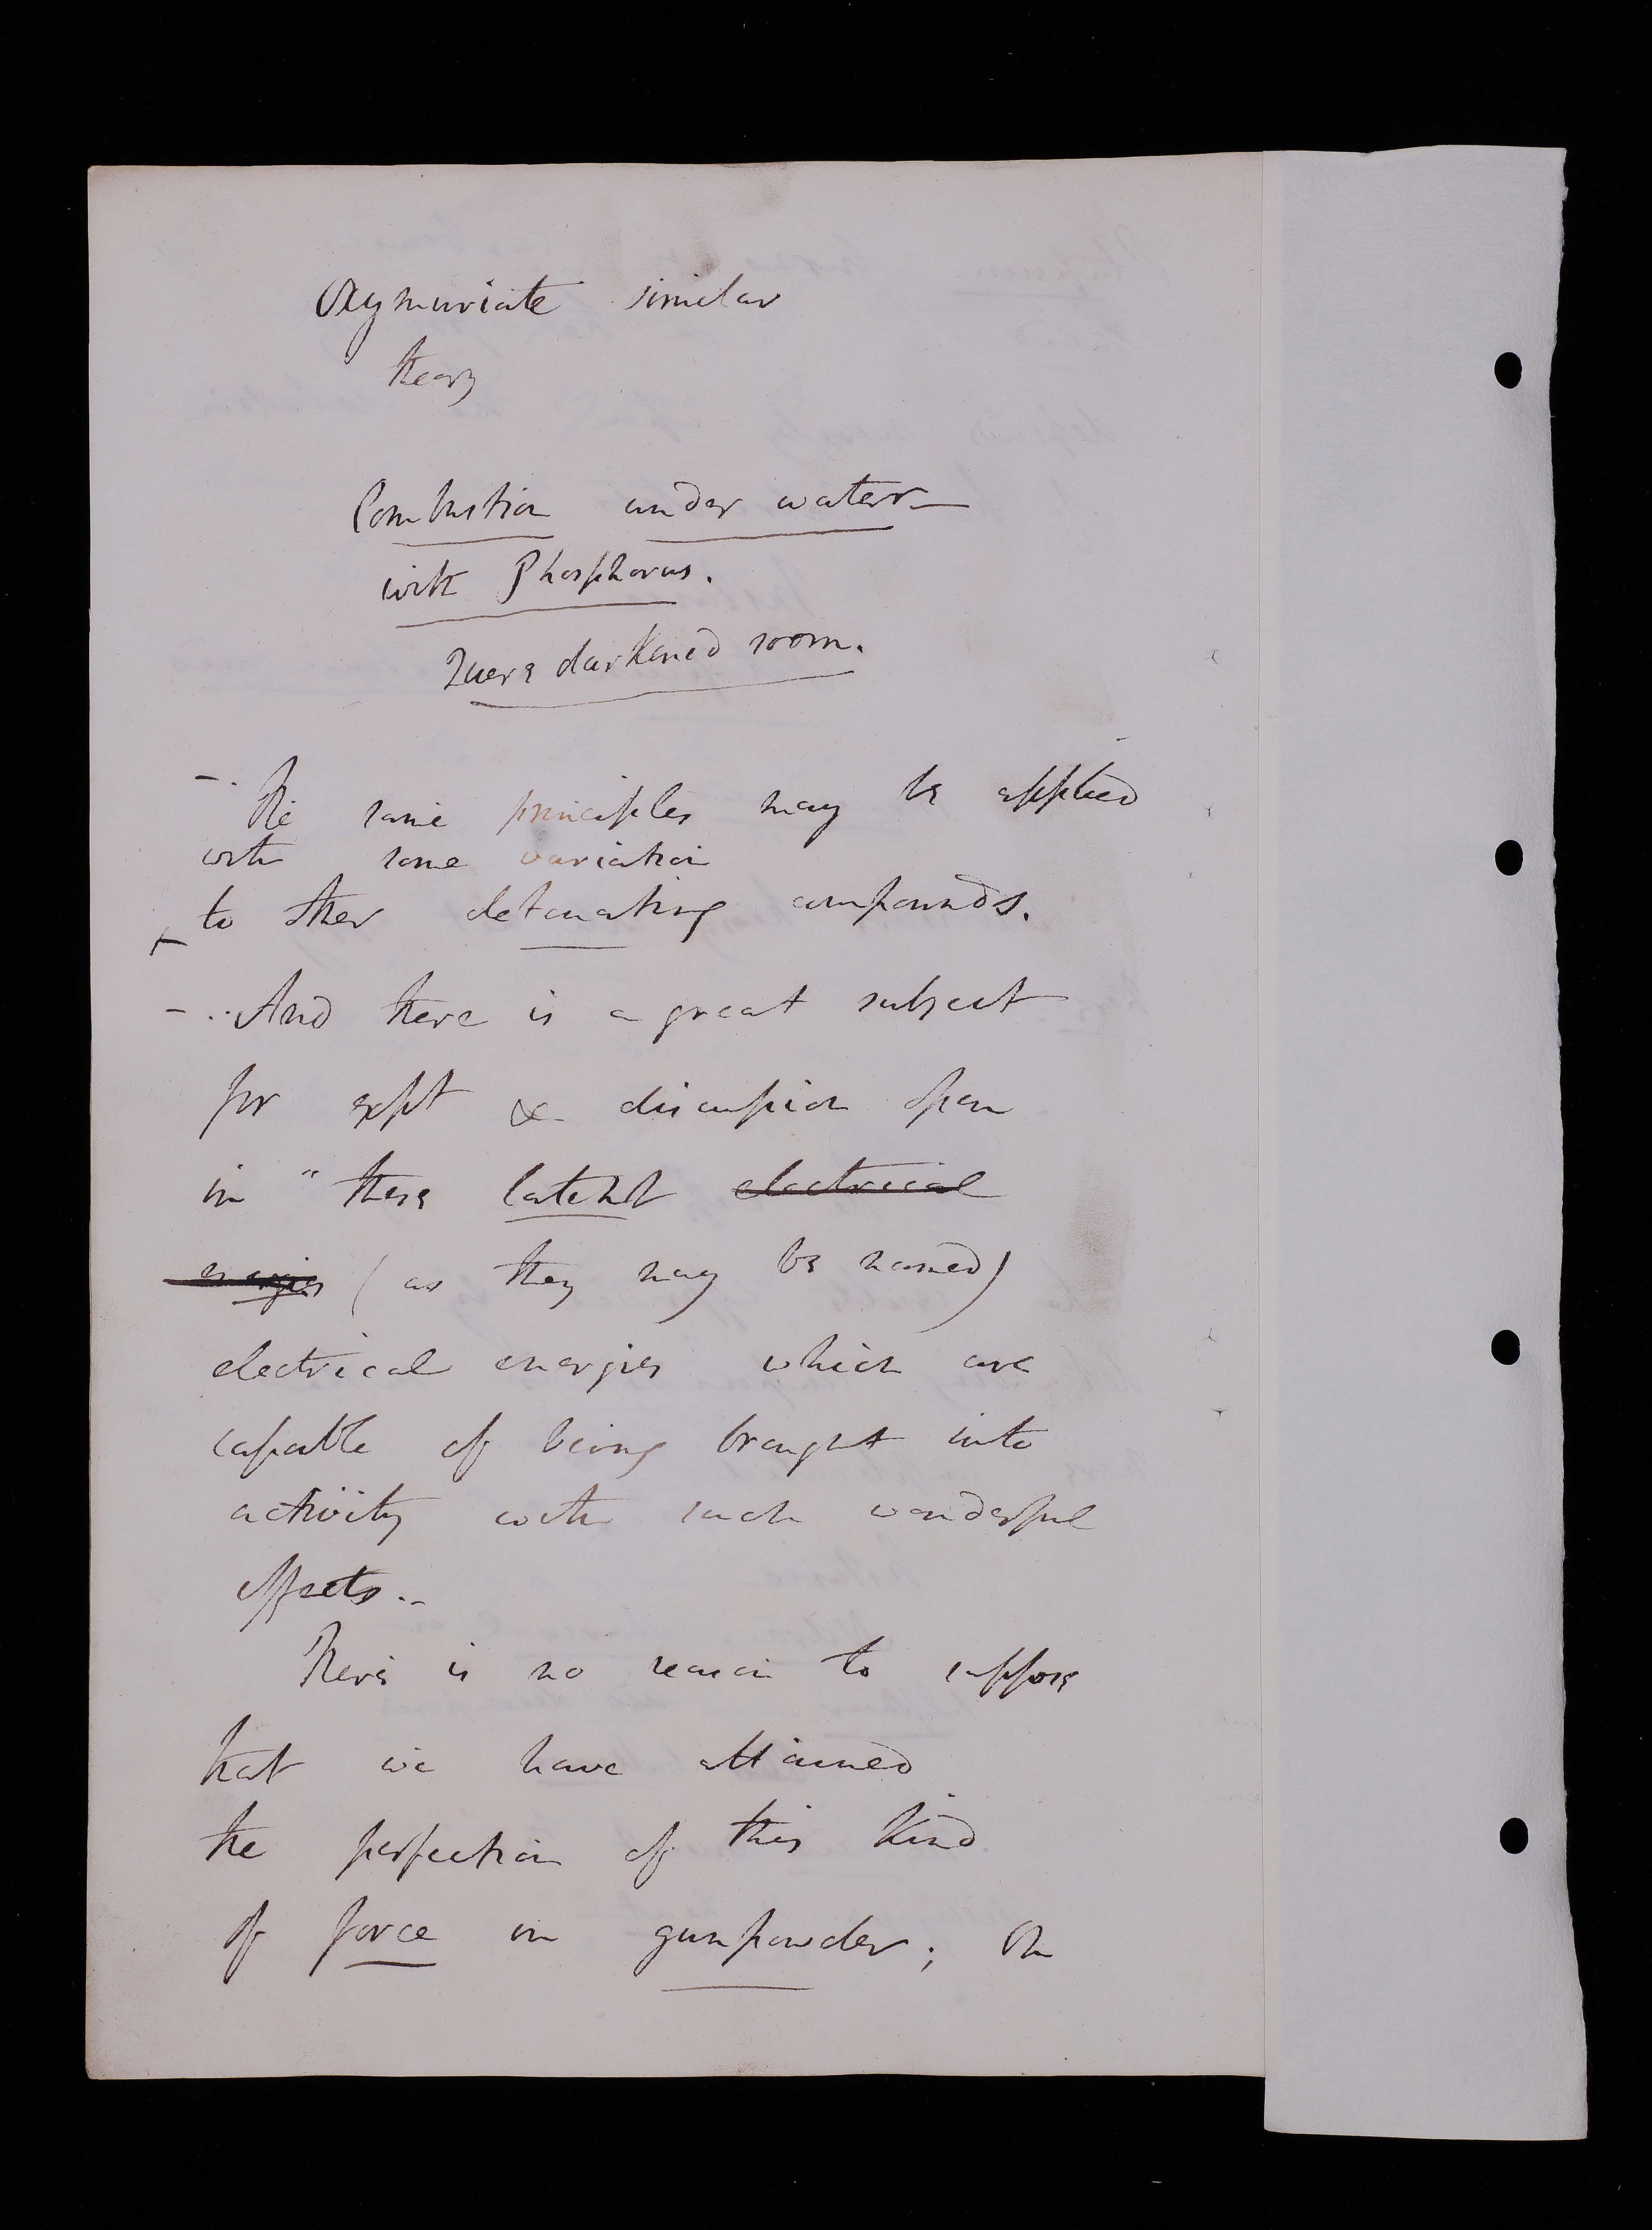 Oxymuriate similar
theory
Combustion under water -
with Phosphorus.
Quere darkened room.
- . The same principles may be applied
with some variation
to other detonating compounds.
- .. And there is a great subject
for expt & discussion open
in " these latent electrical
energies ( as they may be named)
electrical energies which are
capable of being brought into
activity with such wonderful
effects ..
There is no reason to suppose
that we have attained
the perfection of this kind
of force in gunpowder; On